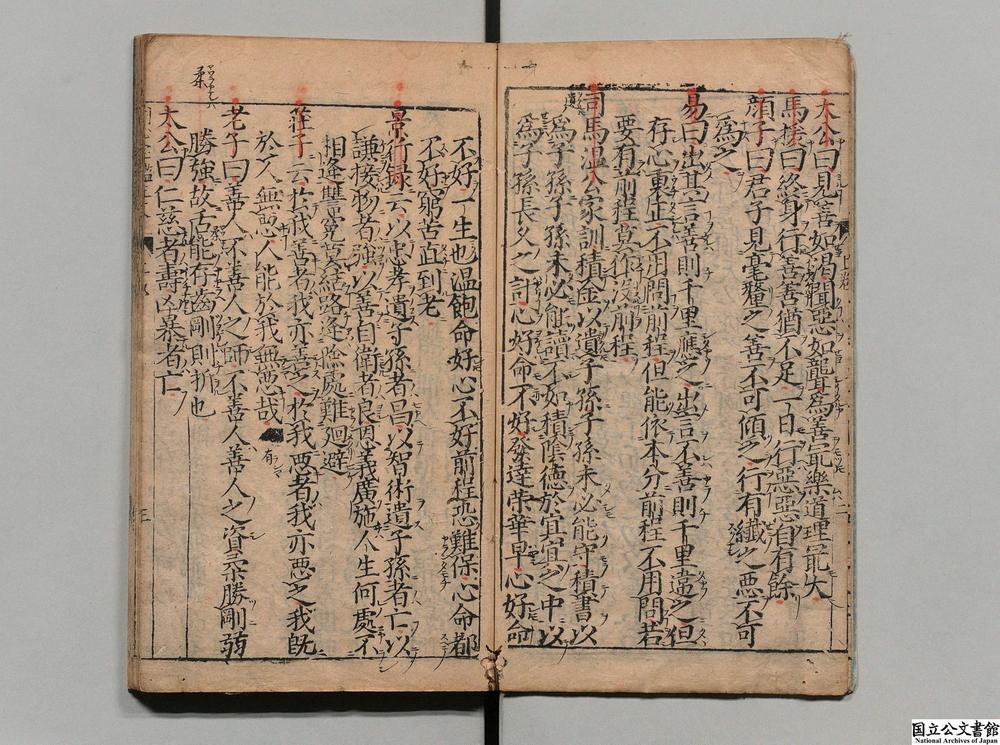 太公曰見善如渴聞惡如聾爲善最樂道理最大
馬援曰終身行善善猶不足一日行惡惡自有餘
顔子曰君子見毫釐之善不可傾之行有纖之惡不可
爲之
易曰出其言善則千里應之出言不善則千里違之但
存心裏正不用問前程但能依本分前程不用問若
要有前程莫作沒前程
司馬溫公家訓積金以遺子孫子孫未必能守積書以
爲子孫子孫未必能讀不如積陰德於冥冥之中以
爲子孫長久之計心好命不好發達榮華早心好命
不好一生也溫飽命好心不好前程恐難保心命都
不好窮苦直到老
景行録云以忠孝遺子孫者昌以智術遺子孫者亡以
謙接物者強以善自衛者良恩義廣施人生何處不
相逢讐冤莫結路逢險處難廻避
莊子云於我善者我亦善之於我惡者我亦惡之我既
於人無惡人能於我無惡哉
有
老子曰善人不善人之師不善人善人之資柔勝剛弱
柔
勝強故舌能存齒剛則折也
太公曰仁慈者壽凶暴者亡
三
国立公文書館
National Archives of Japan